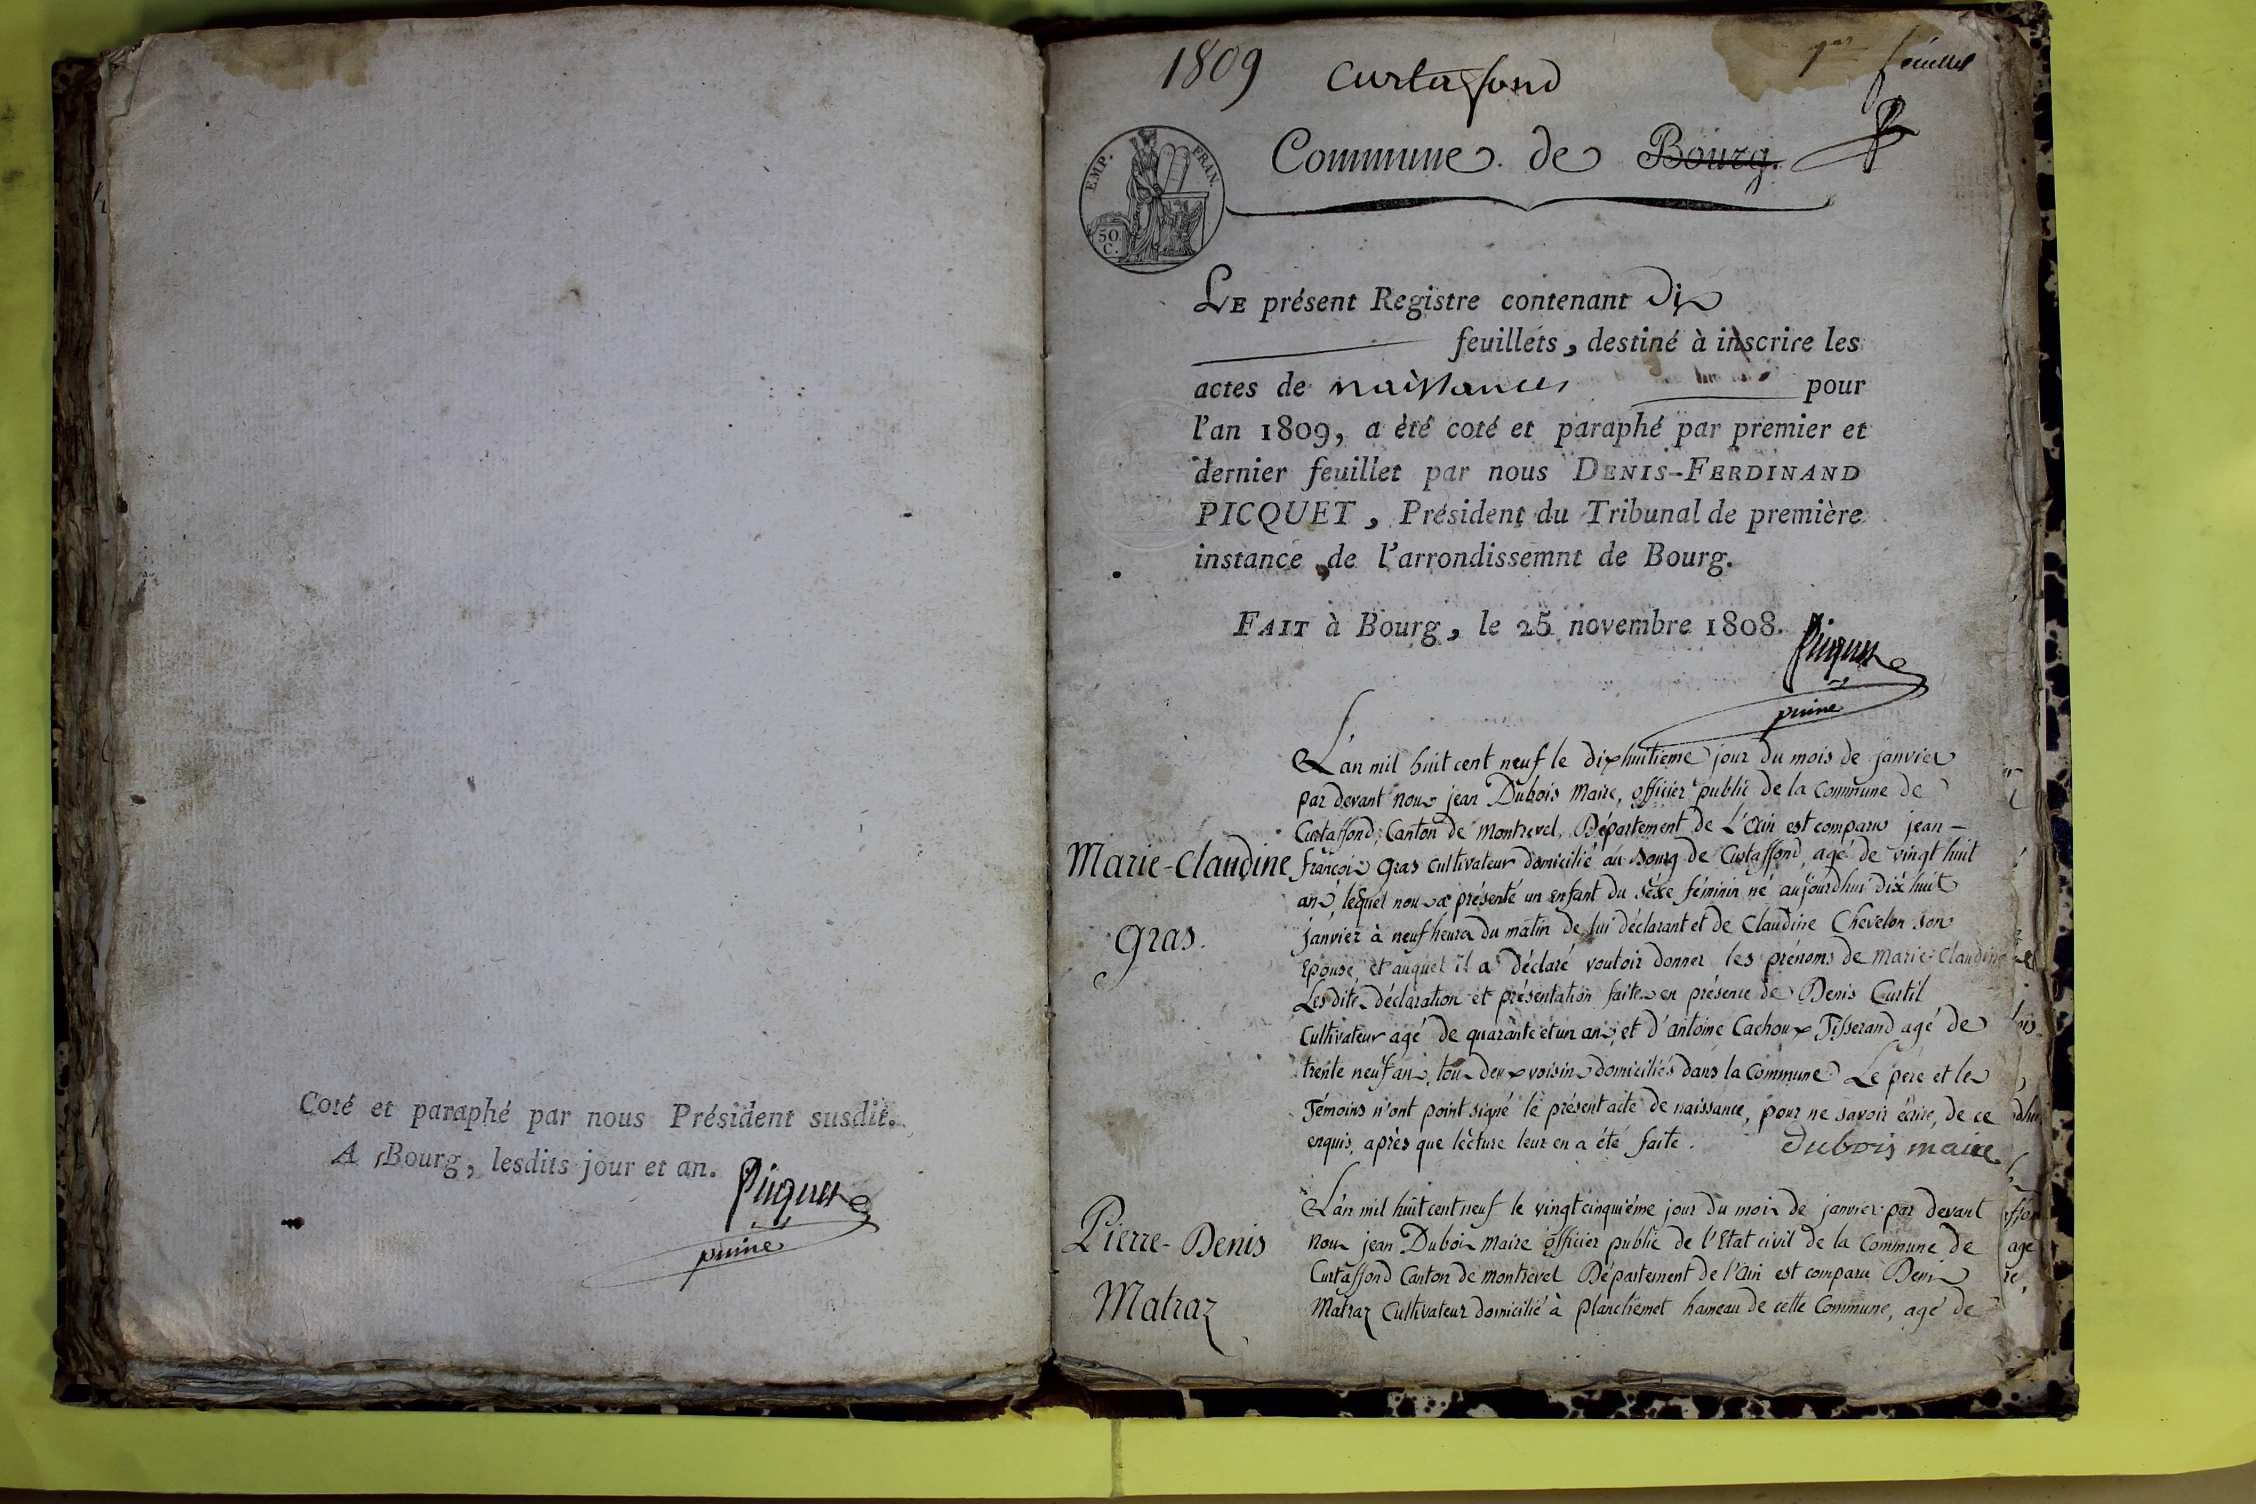 Coté et paraphé par nous Président susdit.
A Bourg, lesdits jour et an.
Picquet
puiné
1809 Curtaffond
1er feuillet
EMP. FRAN.
50
C.
Commune de Bourg.
LE présent Registre contenant dix
feuillets, destiné à inscrire les
actes de naissances pour
l'an 1809, a été coté et paraphé par premier et
dernier feuillet par nous DENIS-FERDINAND
PICQUET, Président du Tribunal de première
instance de l'arrondissemnt de Bourg.
FAIT à Bourg, le 25 novembre 1808.
Picquet
puiné
L'an mil huit cent neuf le dixhuitieme jour du mois de janvier
par devant nous jean Dubois Maire, officier public de la Commune de
Curtaffond, Canton de Montrevel, Département de L'Ain est comparu jean-
Marie-Claudine Gras.
françois Gras Cultivateur domicilié au bourg de Curtaffond, agé de vingt huit
ans, lequel nous a présenté un enfant du séxe féminin né aujourdhui dix huit
janvier à neuf heures du matin de lui déclarant et de Claudine Chevelon son
Epouse, et auquel il a déclaré vouloir donner les prénoms de Marie-Claudine
Lesdites déclaration et présentation faites en présence de Denis Curtil
Cultivateur agé de quarante et un ans, et d'antoine Cachoux Tisserand agé de
trente neuf ans, tous deux voisins domiciliés dans la Commune Le père et les
Témoins n'ont point signé le présent acte de naissance, pour ne savoir écrire, de ce
enquis, après que lècture leur en a été faite. Dubois maire
Pierre-Denis Matraz
L'an mil huit cent neuf le vingt cinquiéme jour du mois de janvier par devant
nous jean Dubois Maire officier public de l'Etat civil de la Commune de
Curtaffond Canton de Montrevel Département de l'Ain est comparu Denis
Matraz Cultivateur domicilié à planchemet hameau de cette Commune, agé de